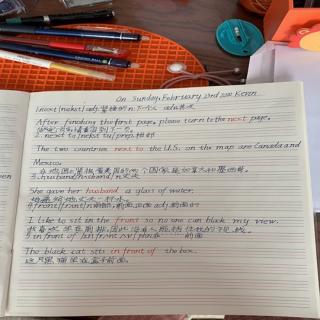 On Sunday, February 23rd Kenn
1. next /nekst/ adj 紧接的 n 下个人 adv 其次
After finishing the first page, please turn to the next page.
2. next to /nekst tu/ prep
The two countries next to the U.S. on the map are Canada and
Mexico.
在地图上紧挨着美国的两个国家是加拿大和墨西哥。
3. husband n 丈夫
She gave her husband a glass of water.
她递给她丈夫一杯水。
4. front /frʌnt/ n adj
I like to sit in the front so no one can block my view.
我喜欢坐在前排，因此没有人能挡住我的视线。
5. in front of 前面
The black cat sits in front of the box.
这只黑猫坐在盒子前面。